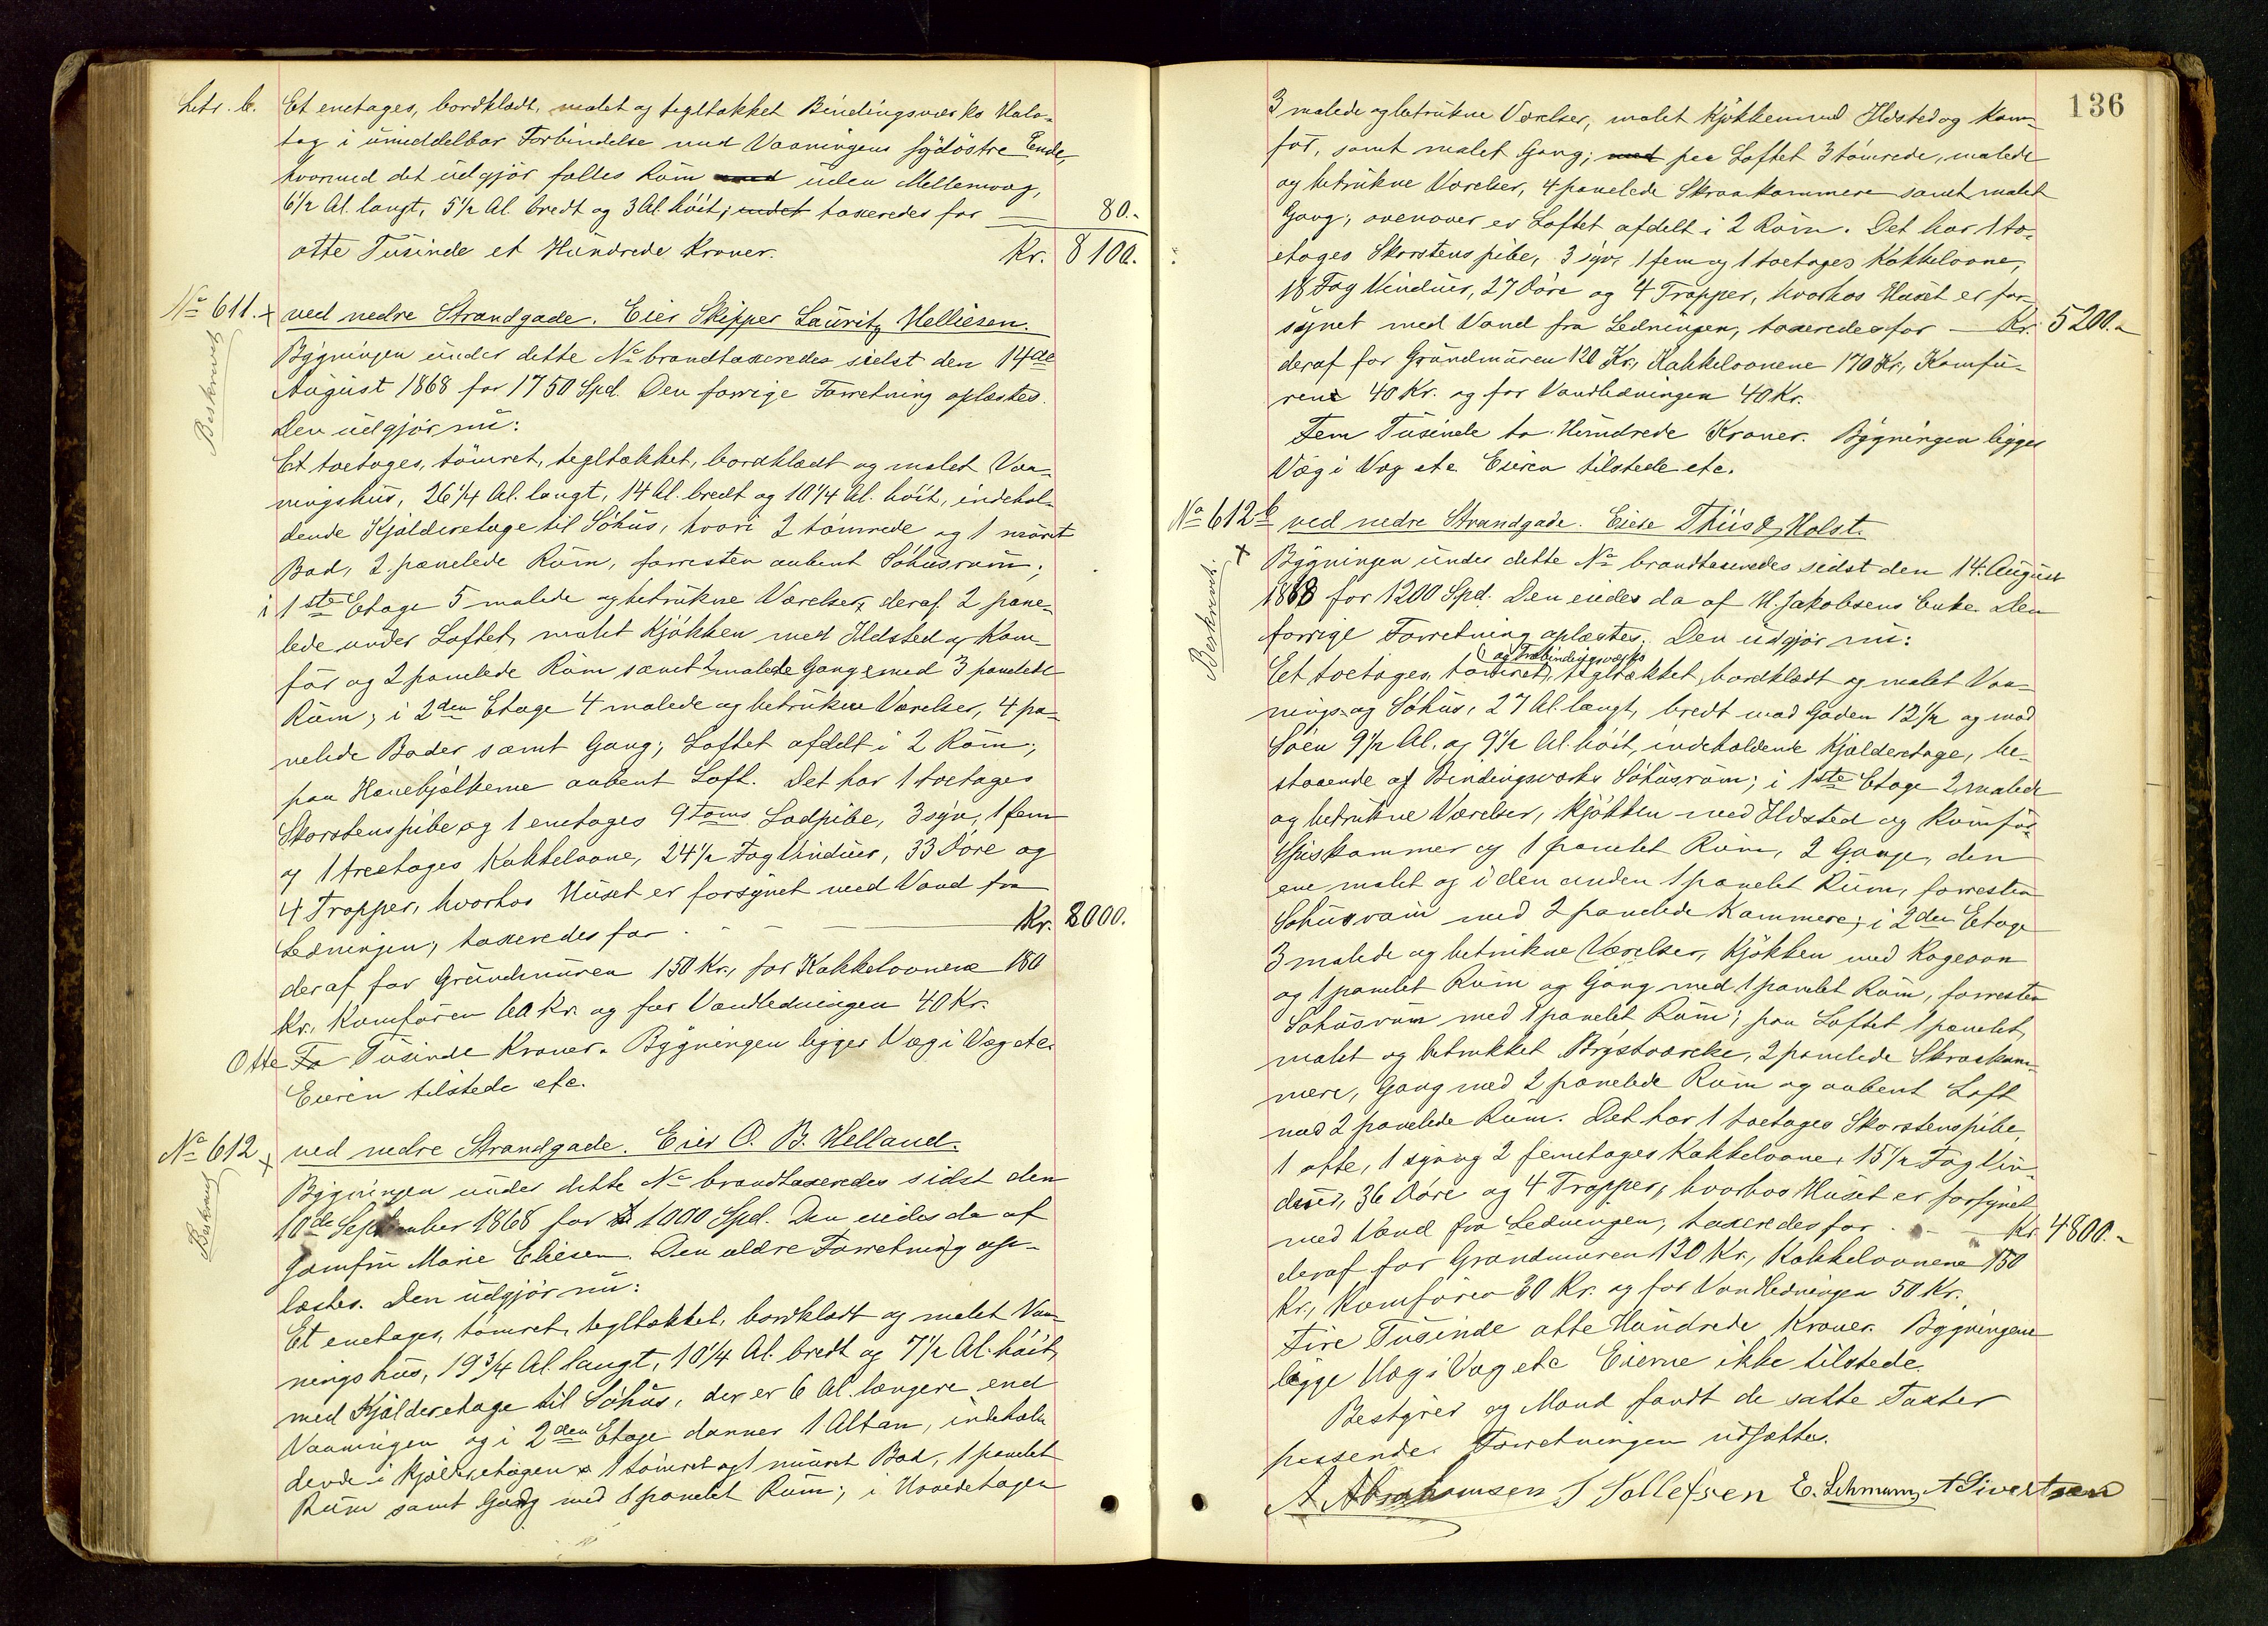 Litr. b. Et enetages, bordklædt, malet og tegltækket Bindingsværks Halv-
tag i umiddelbar Forbindelse med Vaaningens sydöstre Ende
hvormed det udgjör fælles Rüm uden Mellemvæg,
6 1/2 Al. langt, 5 1/2 Al. bredt og 3 Al. höit; taxeredes for — 80.-
otte Tüsinde et Hündrede Kroner. Kr. 8100.-
No 611. + ved nedre Strandgade. Eier Skipper Lauritz Helliesen.
Beskrevet
Bygningen ünder dette No brandtaxeredes sidst den 14de
August 1868 for 1750 Spd. Den forrige Forretning oplæstes.
Den üdgjör nü:
Et toetages, tömret, tegltækket, bordklædt og malet Vaa-
ningshüs, 26 1/4 Al. langt, 14 Al. bredt og 10 1/4 Al. höit, indehol-
dende Kjælderetage til Söhüs, hvori 2 tömrede og 1 müret
Bod, 2 panelede Rüm, forresten aabent Söhüsrüm;
i 1ste Etage 5 malede og betrükne Værelser, deraf 2 pane-
lede under Loftet, malet Kjökken med Ildsted og Kom-
för og 2 panelede Rüm samt 2 malede Gange med 3 panelede
Rüm; i 2den Etage 4 malede og betrükne Værelser, 4 pa-
nelede Boder samt Gang; Loftet afdelt i 2 Rüm;
paa Hanebjælkerne aabent Loft. Det har 1 toetages
Skorstenspibe og 1 enetages 9 Toms Lodpibe, 3 syv, 1 fem
og 1 treetages Kakkelovne, 24 1/2 Fag Vindüer, 33 Döre og
4 Trapper, hvorhos Hüset er forsynet med Vand fra
Ledningen; taxeredes for — Kr. 8000.
deraf for Gründmüren 150 Kr., for Kakkelovnene 180
Kr., Komfören 60 Kr. og for Vandledningen 40 Kr.
Otte Tüsinde Kroner. Bygningen ligger Væg i Væg etc.
Eieren tilstede etc.
No 612 + ved nedre Strandgade. Eier O. B. Helland.
Beskrevet
Bygningen ünder dette No brandtaxeredes sidst den
10de September 1868 for 1000 Spd. Den eiedes da af
Jomfrü Marie Eliesen. Den ældre Forretning op-
læstes. Den üdgjör nü:
Et enetages, tömret, tegltækket, bordklædt og malet Vaa-
ningshüs, 19 3/4 Al. langt, 10 1/4 Al. bredt og 7 1/2 Al. höit,
med Kjælderetage til Söhüs, der er 6 Al. længere end
Vaaningen og i 2den Etage danner 1 Altan, indehol-
dende i Kjælderetagen 1 tömret og 1 müret Bod, 1 panelet
Rüm samt Gang med 1 panelet Rüm; i Hovedetagen
136
3 malede og betrükne Værelser, malet Kjökken med Ildsted og Kom-
för, samt malet Gang; paa Loftet 3 tömrede, malede
og betrükne Værelser, 4 panelede Skraakammere samt malet
Gang; ovenover er Loftet afdelt i 2 Rüm. Det har 1 to-
etages Skorstenspibe, 3 syv, 1 fem og 1 toetages Kakkelovne,
18 Fag Vindüer, 27 Döre og 4 Trapper, hvorhos Hüset er for-
synet med Vand fra Ledningen; taxeredes for — Kr. 5200.-
deraf for Gründmüren 120 Kr., Kakkelovnene 170 Kr., Komfü-
rene 40 Kr. og for Vandledningen 40 Kr.
Fem Tüsinde to Hündrede Kroner. Bygningen ligger
Væg i Væg etc. Eieren tilstede etc.
No 612 b ved nedre Strandgade. Eiere Thiis & Holst.
Beskrevet. +
Bygningen ünder dette No brandtaxeredes sidst den 14. August
1868 for 1200 Spd. Den eiedes da af H. Jakobsens Enke. Den
forrige Forretning oplæstes. Den üdgjör nü:
og Træbindingsværks
Et toetages, tömret, tegltækket, bordklædt og malet Vaa-
nings- og Söhüs, 27 Al. langt, bredt mod Gaden 12 1/2 og mod
Söen 9 1/2 Al. og 9 1/2 Al. höit, indeholdende Kjælderetage, be-
staaende af Bindingsværks Söhüsrüm; i 1ste Etage 2 malede
og betrükne Værelser, Kjökken med Ildsted og Komför,
Spiskammer og 1 panelet Rüm, 2 Gange, den
ene malet og i den anden 1 panelet Rüm, forresten
Söhüsrüm med 2 panelede Kammere; i 2den Etage
3 malede og betrükne Værelser, Kjökken med Kogeovn
og 1 panelet Rüm og Gang med 1 panelet Rüm, forresten
Söhüsrüm med 1 panelet Rüm; paa Loftet 1 panelet,
malet og betrukket Brystværelse, 2 panelede Skraakam-
mere, Gang med 2 panelede Rüm og aabent Loft
med 2 panelede Rüm. Det har 1 toetages Skorstenspibe,
1 otte, 1 syv og 2 femetages Kakkelovne, 15 1/2 Fag Vin-
düer, 36 Döre og 4 Trapper, hvorhos Hüset er forsynet
med Vand fra Ledningen; taxeredes for — Kr. 4800.-
deraf for Grundmuren 120 Kr., Kakkelovnene 150
Kr., Komfören 30 Kr. og for Vandledningen 50 Kr.
Fire Tüsinde otte Hündrede Kroner. Bygningene
ligge Væg i Væg etc. Eierne ikke tilstede.
Bestyrer og Mænd fandt de satte Taxter
passende. Forretningen udsattes.
A Abrahamsen T Tollefsen E. Lehmann, A Sivertsen